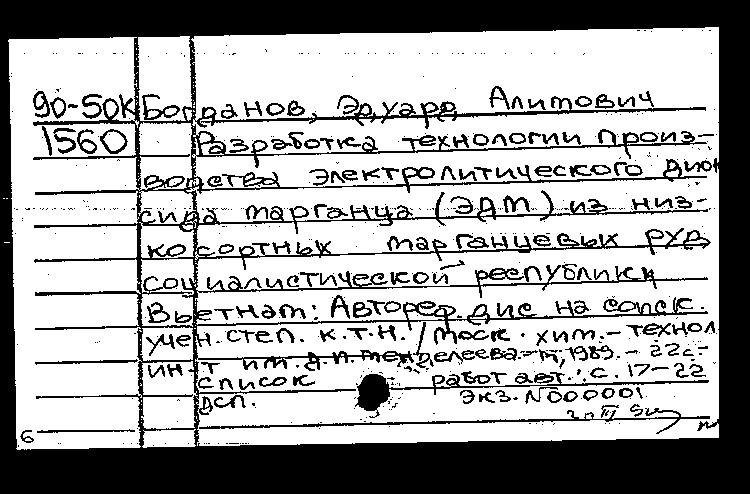 90-50К Богданов, Эдуард Алимович
1560 Разработка технологии произ-
водства электролитического диок
сида марганца (ЭДМ) из низ-
косортных марганцевых руд
социалистической республики
Вьетнам: Автореф. дис на соиск.
учен. степ. к.т.н. / Моск. хим.-технол
ин-т им. Д.И. Менделеева.-М, 1989. - 22с.-
список работ авт.: с. 17-22
ДСП. экз. N000001
6